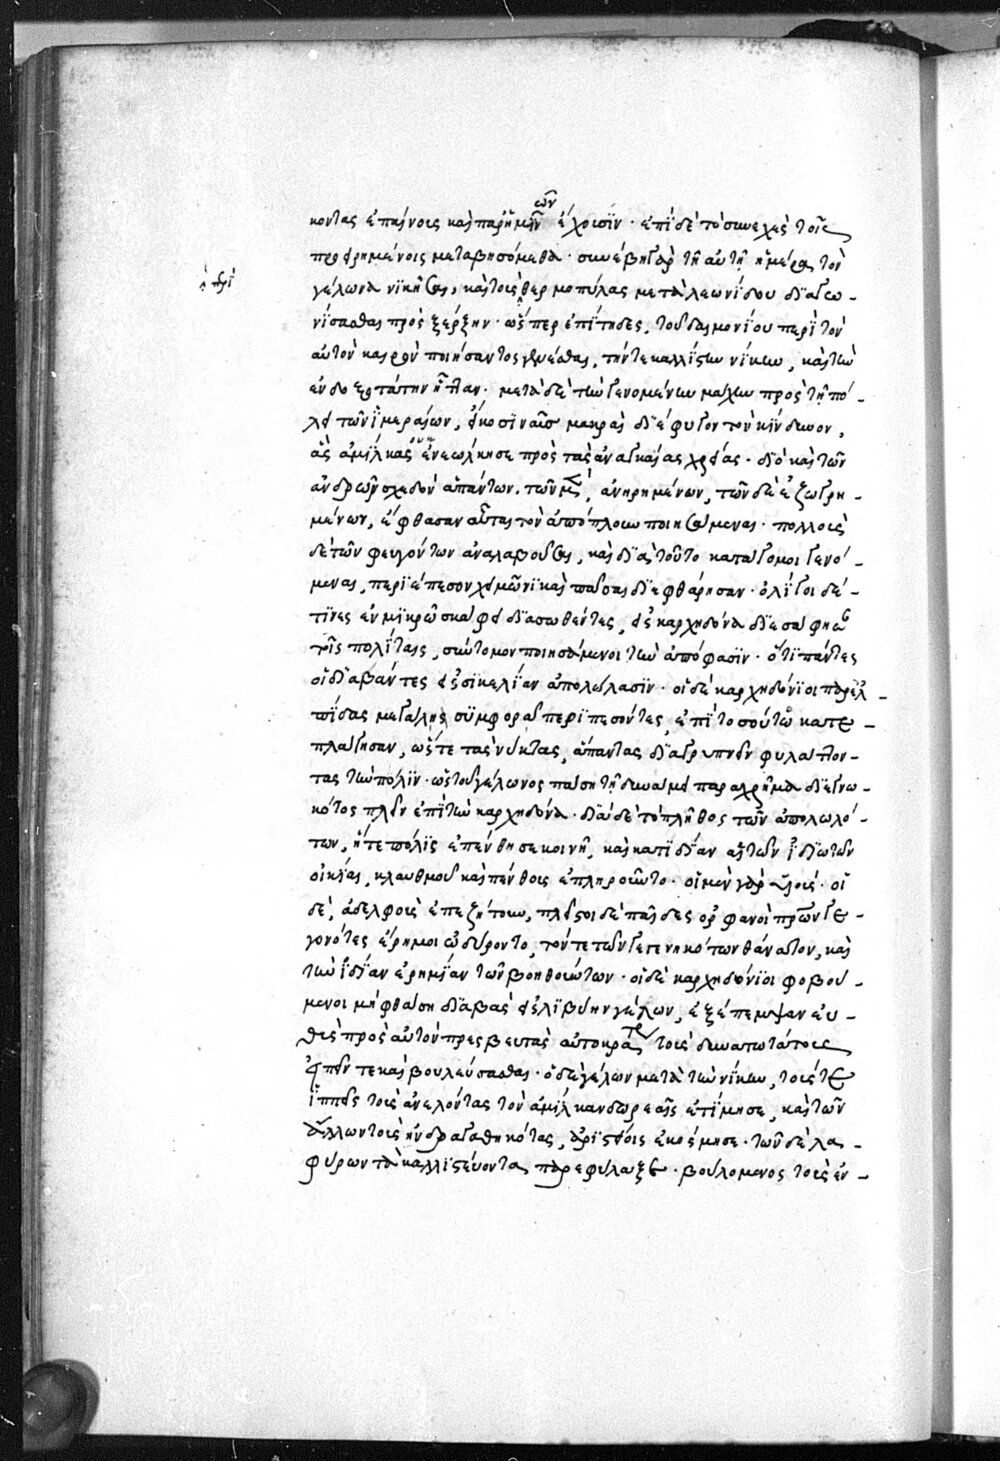 κοντας ἐπαίνοις καὶ παρ' ἡμῶν ἔχουσϊν · ἐπὶ δὲ τὸ συνεχὲς τοῖς
προειρημένοις μεταβησόμεθα · συνέβη γὰρ τῆ αὐτῆ ἡμέρα τὸν
γέλωνα νϊκῆσαι, καὶ τοὺς θερμοπύλας μετὰ λεωνίδου δϊαγω-
νίσασθαι πρὸς ξέρξην · ὥσπερ ἐπίτηδες, τοῦ δαιμονίου περὶ τὸν
αὐτὸν καιρὸν ποιήσαντος γενέσθαι, τήν τε καλλίστην νίκην, καὶ τὴν
ἐνδοξοτάτην ἧτταν · μετὰ δὲ τὴν γενομένην μάχην πρὸς τῆ πό-
λει τῶν ἱμεραίων, εἴκοσϊ ναῦς μακραὶ δϊέφυγον τὸν κίνδυνον,
ἃς ἀμίλκας ἐνεώλκησε πρὸς τὰς ἀναγκαίας χρείας · διὸ καὶ τῶν
ἀνδρῶν σχεδὸν ἁπάντων · τῶν μὲν, ἀνηρημένων, τῶν δὲ ἐζωγρη-
μένων, ἔφθασαν αὗται τὸν ἀπόπλουν ποιησάμεναι · πολλοὺς
δὲ τῶν φευγόντων ἀναλαβοῦσαι, καὶ διὰ τοῦτο κατάγομοι γενό-
μεναι, περϊέπεσον χειμῶνϊ καὶ πᾶσαι δϊεφθάρησαν · ὀλίγοι δέ-
τϊνες ἐν μϊκρῶ σκάφει δϊασωθέντες, εἰς καρχηδόνα δϊεσάφησαν
τοῖς πολίταις, σύντομον ποιησάμενοι τὴν ἀπόφασϊν · ὅτϊ πάντες
οἱ δϊαβάντες εἰς σϊκελίαν ἀπολώλασϊν · οἱ δὲ καρχηδόνϊοι παρ' ἐλ-
πίδας μεγάλης συμφορᾶ περϊπεσόντες, ἐπὶ τοσοῦτον κατε-
πλάγησαν, ὥστε τὰς νύκτας, ἅπαντας δϊαγρυπνεῖν φυλάττον-
τας τὴν πόλϊν · ὡς τοῦ γέλωνος πάση τῆ δυνάμει παραχρῆμα δϊεγνω-
κότος πλεῖν ἐπὶ τὴν καρχηδόνα · δϊὰ δὲ τὸ πλῆθος τῶν ἀπολωλό-
των, ἥ τε πόλϊς ἐπένθησε κοινῆ, καὶ κατ' ἰδίαν αἱ τῶν ἰδιωτῶν
οἰκίαι, κλαυθμοῦ καὶ πένθους ἐπληροῦντο · οἱ μὲν γὰρ υἱοὺς · οἱ
δὲ, ἀδελφοὺς ἐπεζήτουν, πλεῖστοι δὲ παῖδες ὀρφανοὶ πρων γε-
γονότες ἔρημοι ὠδύροντο, τόν τε τῶν γεγενηκότων θάνατον, καὶ
τὴν ἰδίαν ἐρημίαν τῶν βοηθούντων · οἱ δὲ καρχηδόνϊοι φοβού-
μενοι μὴ φθάση δϊαβὰς εἰς λϊβύην γέλων, ἐξέπεμψαν εὐ-
θὺς πρὸς αὐτὸν πρεσβευτὰς αὐτοκράτορας τοὺς δυνατωτάτους
εἰπεῖν τε καὶ βουλεύσασθαι · ὁ δὲ γέλων μετὰ τὴν νίκην, τούς τε
ἱππεῖς τοὺς ἀνελόντας τὸν ἀμίλκαν δωρεαῖς ἐτίμησε, καὶ τῶν
ἄλλων τοὺς ἠνδραγαθηκότας, ἀρϊστείοις ἐκόσμησε · τῶν δὲ λα-
φύρων τὰ καλλϊστεύοντα παρεφύλαξε · βουλόμενος τοὺς ἐν-